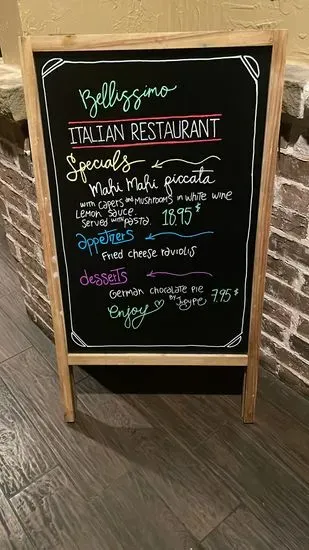 Bellissimo
ITALIAN RESTAURANT
Specials
Mahi Mahi piccata
with capers and mushrooms in white wine
Lemon sauce.
Served with pasta. 18.95 $
appetizers
Fried cheese raviolis
desserts
German chocolate pie 7.95 $
Enjoy